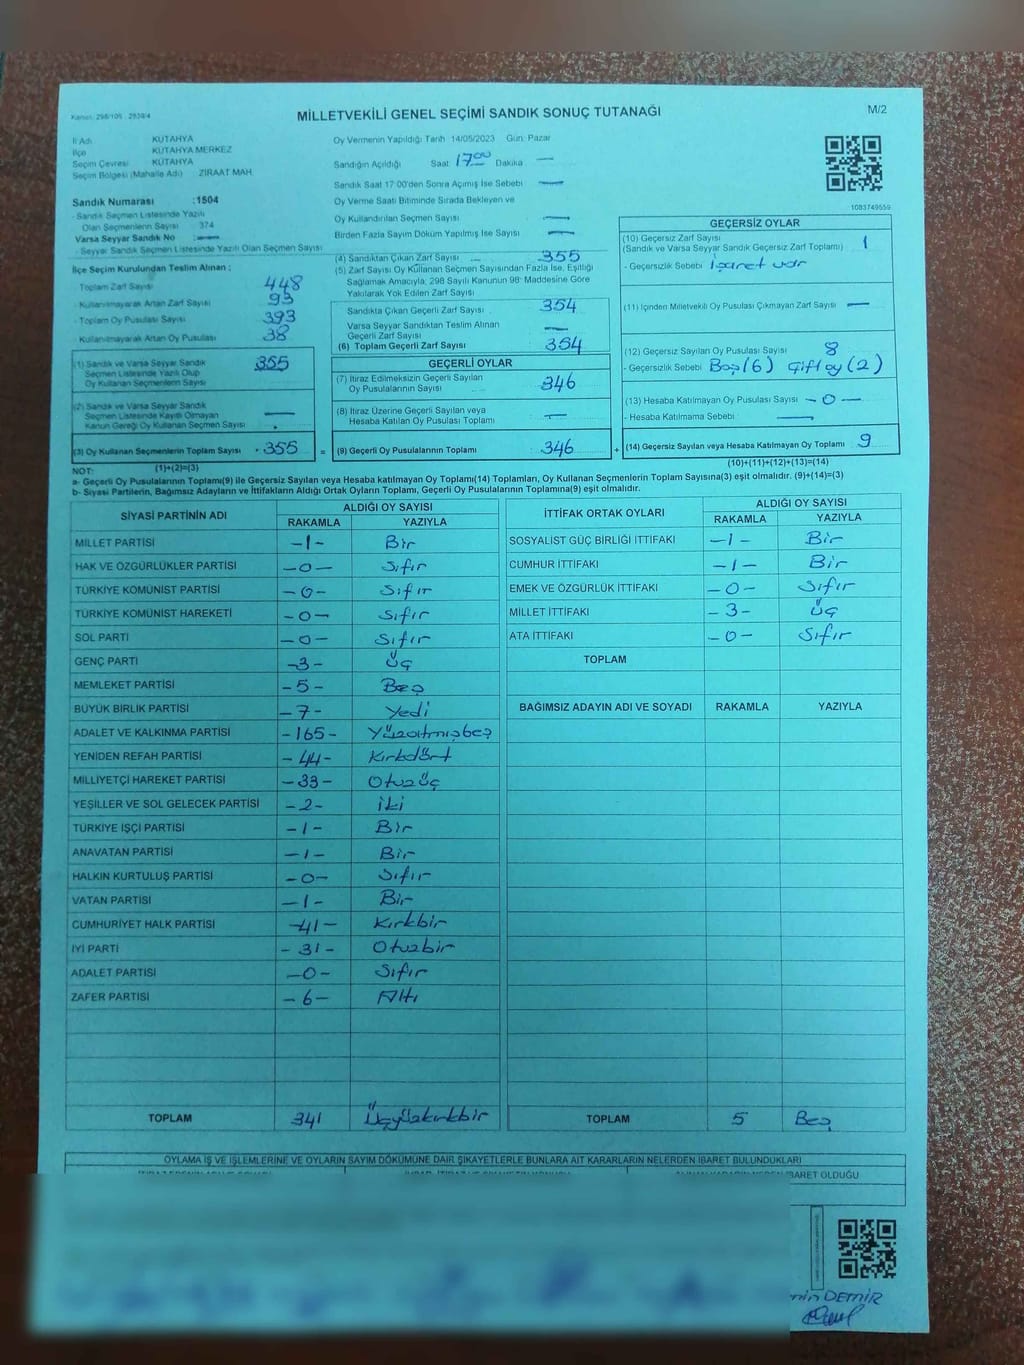 Kanun: 298/105 - 2839/4
MİLLETVEKİLİ GENEL SEÇİMİ SANDIK SONUÇ TUTANAĞI
M/2
İl Adı KÜTAHYA
İlçe KÜTAHYA MERKEZ
Seçim Çevresi KÜTAHYA
Seçim Bölgesi (Mahalle Adı) ZİRAAT MAH.
Sandık Numarası :1504
- Sandık Seçmen Listesinde Yazılı
Olan Seçmenlerin Sayısı 374
Varsa Seyyar Sandık No : —
- Seyyar Sandık Seçmen Listesinde Yazılı Olan Seçmen Sayısı
İlçe Seçim Kurulundan Teslim Alınan :
Toplam Zarf Sayısı 448
- Kullanılmayarak Artan Zarf Sayısı 93
- Toplam Oy Pusulası Sayısı 393
- Kullanılmayarak Artan Oy Pusulası 38
(1) Sandık ve Varsa Seyyar Sandık
Seçmen Listesinde Yazılı Olup
Oy Kullanan Seçmenlerin Sayısı 355
(2) Sandık ve Varsa Seyyar Sandık
Seçmen Listesinde Kayıtlı Olmayan
Kanun Gereği Oy Kullanan Seçmen Sayısı —
(3) Oy Kullanan Seçmenlerin Toplam Sayısı 355 =
Oy Vermenin Yapıldığı Tarih 14/05/2023 Gün: Pazar
Sandığın Açıldığı Saat 17:00 Dakika —
Sandık Saat 17:00'den Sonra Açımış İse Sebebi —
Oy Verme Saati Bitiminde Sırada Bekleyen ve
Oy Kullandırılan Seçmen Sayısı —
Birden Fazla Sayım Döküm Yapılmış İse Sayısı —
(4) Sandıktan Çıkan Zarf Sayısı 355
(5) Zarf Sayısı Oy Kullanan Seçmen Sayısından Fazla İse, Eşitliği
Sağlamak Amacıyla, 298 Sayılı Kanunun 98. Maddesine Göre
Yakılarak Yok Edilen Zarf Sayısı
Sandıkta Çıkan Geçerli Zarf Sayısı 354
Varsa Seyyar Sandıktan Teslim Alınan
Geçerli Zarf Sayısı —
(6) Toplam Geçerli Zarf Sayısı 354
GEÇERLİ OYLAR
(7) İtiraz Edilmeksizin Geçerli Sayılan
Oy Pusulalarının Sayısı 346
(8) İtiraz Üzerine Geçerli Sayılan veya
Hesaba Katılan Oy Pusulası Toplamı —
(9) Geçerli Oy Pusulalarının Toplamı 346 +
1083749559
GEÇERSİZ OYLAR
(10) Geçersiz Zarf Sayısı
(Sandık ve Varsa Seyyar Sandık Geçersiz Zarf Toplamı) 1
- Geçersizlik Sebebi İşaret var
(11) İçinden Milletvekili Oy Pusulası Çıkmayan Zarf Sayısı —
(12) Geçersiz Sayılan Oy Pusulası Sayısı 8
- Geçersizlik Sebebi Boş(6) Çift oy (2)
(13) Hesaba Katılmayan Oy Pusulası Sayısı —0—
- Hesaba Katılmama Sebebi —
(14) Geçersiz Sayılan veya Hesaba Katılmayan Oy Toplamı 9
NOT: (1)+(2)=(3)
(10)+(11)+(12)+(13)=(14)
a- Geçerli Oy Pusulalarının Toplamı(9) ile Geçersiz Sayılan veya Hesaba katılmayan Oy Toplamı(14) Toplamları, Oy Kullanan Seçmenlerin Toplam Sayısına(3) eşit olmalıdır. (9)+(14)=(3)
b- Siyasi Partilerin, Bağımsız Adayların ve İttifakların Aldığı Ortak Oyların Toplamı, Geçerli Oy Pusulalarının Toplamına(9) eşit olmalıdır.
SİYASİ PARTİNİN ADI
ALDIĞI OY SAYISI
RAKAMLA YAZIYLA
MİLLET PARTİSİ -1- Bir
HAK VE ÖZGÜRLÜKLER PARTİSİ -0- Sıfır
TÜRKİYE KOMÜNİST PARTİSİ -0- Sıfır
TÜRKİYE KOMÜNİST HAREKETİ -0- Sıfır
SOL PARTİ -0- Sıfır
GENÇ PARTİ -3- Üç
MEMLEKET PARTİSİ -5- Beş
BÜYÜK BİRLİK PARTİSİ -7- Yedi
ADALET VE KALKINMA PARTİSİ -165- Yüzaltmışbeş
YENİDEN REFAH PARTİSİ -44- Kırkdört
MİLLİYETÇİ HAREKET PARTİSİ -33- Otuzüç
YEŞİLLER VE SOL GELECEK PARTİSİ -2- İki
TÜRKİYE İŞÇİ PARTİSİ -1- Bir
ANAVATAN PARTİSİ -1- Bir
HALKIN KURTULUŞ PARTİSİ -0- Sıfır
VATAN PARTİSİ -1- Bir
CUMHURİYET HALK PARTİSİ -41- Kırkbir
İYİ PARTİ -31- Otuzbir
ADALET PARTİSİ -0- Sıfır
ZAFER PARTİSİ -6- Altı
TOPLAM 341 Üçyüzkırkbir
İTTİFAK ORTAK OYLARI
ALDIĞI OY SAYISI
RAKAMLA YAZIYLA
SOSYALİST GÜÇ BİRLİĞİ İTTİFAKI -1- Bir
CUMHUR İTTİFAKI -1- Bir
EMEK VE ÖZGÜRLÜK İTTİFAKI -0- Sıfır
MİLLET İTTİFAKI -3- Üç
ATA İTTİFAKI -0- Sıfır
TOPLAM
BAĞIMSIZ ADAYIN ADI VE SOYADI RAKAMLA YAZIYLA
TOPLAM 5 Beş
OYLAMA İŞ VE İŞLEMLERİNE VE OYLARIN SAYIM DÖKÜMÜNE DAİR ŞİKAYETLERLE BUNLARA AİT KARARLARIN NELERDEN İBARET BULUNDUKLARI
İBARET OLDUĞU
DEMİR